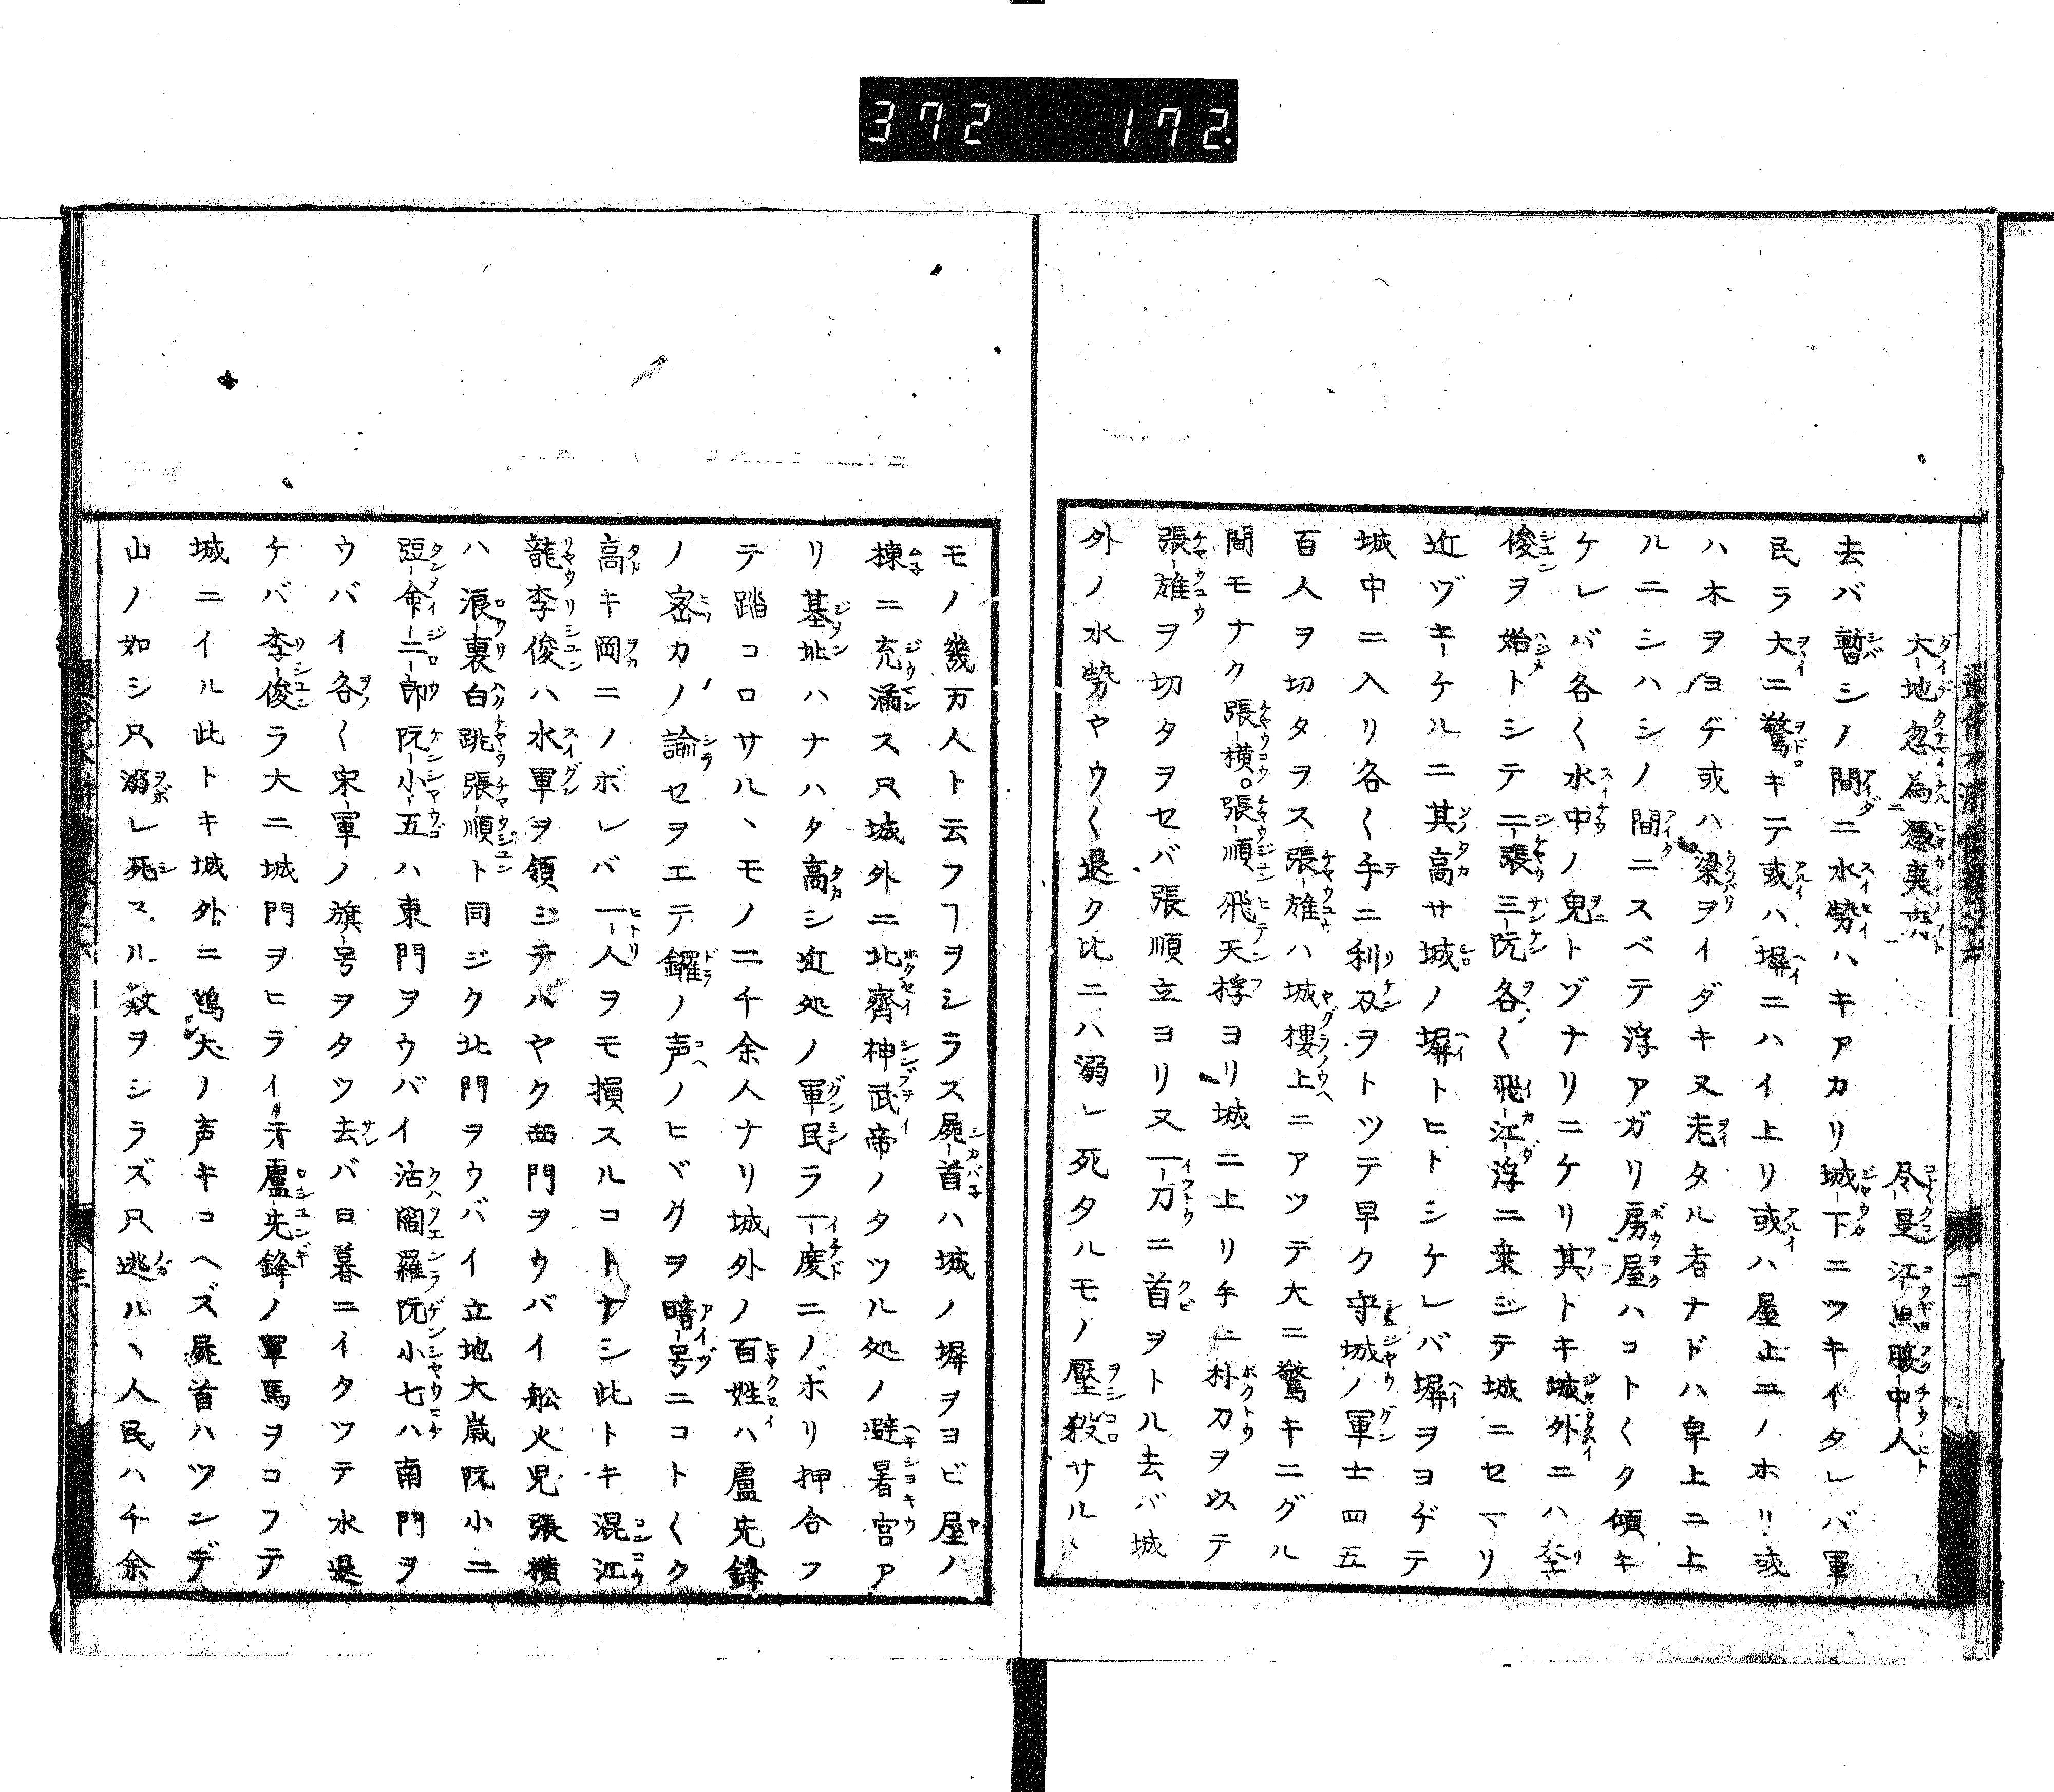 372 172
大地忽為馮夷宅 尽是江魚腹中人
去バ暫シノ間ニ水勢ハキアカリ城下ニツキイタレバ軍
民ラ大ニ驚キテ或ハ塀ニハイ上リ或ハ屋上ニノホリ或
ハ木ヲヨヂ或ハ梁ヲイダキ又老タル者ナドハ卓上ニ上
ルニシハシノ間ニスベテ浮アガリ房屋ハコト〱ク傾キ
ケレバ各〱水中ノ鬼トゾナリニケリ其トキ城外ニハ李
俊ヲ始トシテ二張三阮各〱飛江浮ニ乗ジテ城ニセマリ
近ヅキケルニ其高サ城ノ塀トヒトシケレバ塀ヲヨヂテ
城中ニ入リ各〱手ニ利刄ヲトツテ早ク守城ノ軍士四五
百人ヲ切タヲス張雄ハ城樓上ニアツテ大ニ驚キニグル
間モナク張横。張順飛天桴ヨリ城ニ上リ手ニ朴刀ヲ以テ
張雄ヲ切タヲセバ張順立ヨリ又一刀ニ首ヲトル去バ城
外ノ水勢ヤウ〱退ク比ニハ溺レ死タルモノ壓殺サルヽ
モノ幾万人ト云フヿヲシラス屍首ハ城ノ塀ヲヨビ屋ノ
棟ニ充滿ス只城外ニ北齊神武帝ノタツル処ノ避暑宮ア
リ基址ハナハタ高シ近処ノ軍民ラ一度ニノボリ押合フ
テ踏コロサルヽモノ二千余人ナリ城外ノ百姓ハ盧先鋒
ノ密カノ諭セヲエテ鑼ノ声ノヒヾグヲ暗号ニコト〱ク
高キ岡ニノボレバ一人ヲモ損スルコトナシ此トキ混江
龍李俊ハ水軍ヲ領ジテハヤク西門ヲウバイ船火児張横
ハ浪裏白跳張順ト同ジク北門ヲウバイ立地大歳阮小二
短命二郎阮小五ハ東門ヲウバイ活閻羅阮小七ハ南門ヲ
ウバイ各〱宋軍ノ旗号ヲタツ去バ日暮ニイタツテ水退
ケバ李俊ラ大ニ城門ヲヒライテ盧先鋒ノ軍馬ヲコフテ
城ニイル此トキ城外ニ鶏犬ノ声キコヘズ屍首ハツンデ
山ノ如シ只溺レ死スル数ヲシラズ只逃ルヽ人民ハ千余